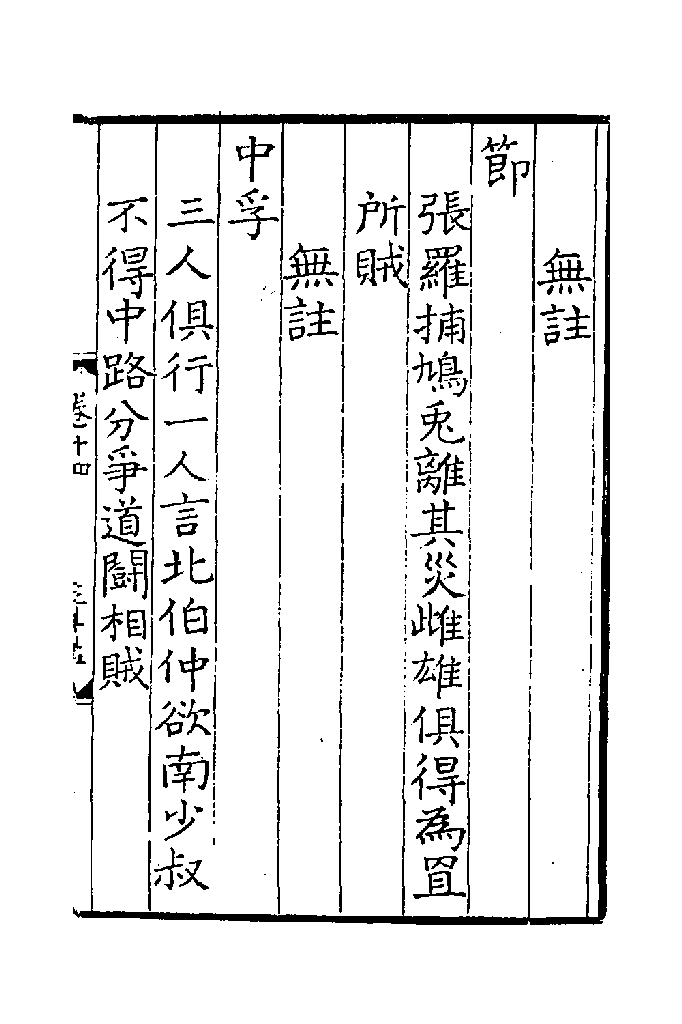 無註
節
張羅捕鳩兎離其災雌雄俱得為罝
所賊
無註
中孚
三人俱行一人言北伯仲欲南少叔
不得中路分爭道鬭相賊
卷十四